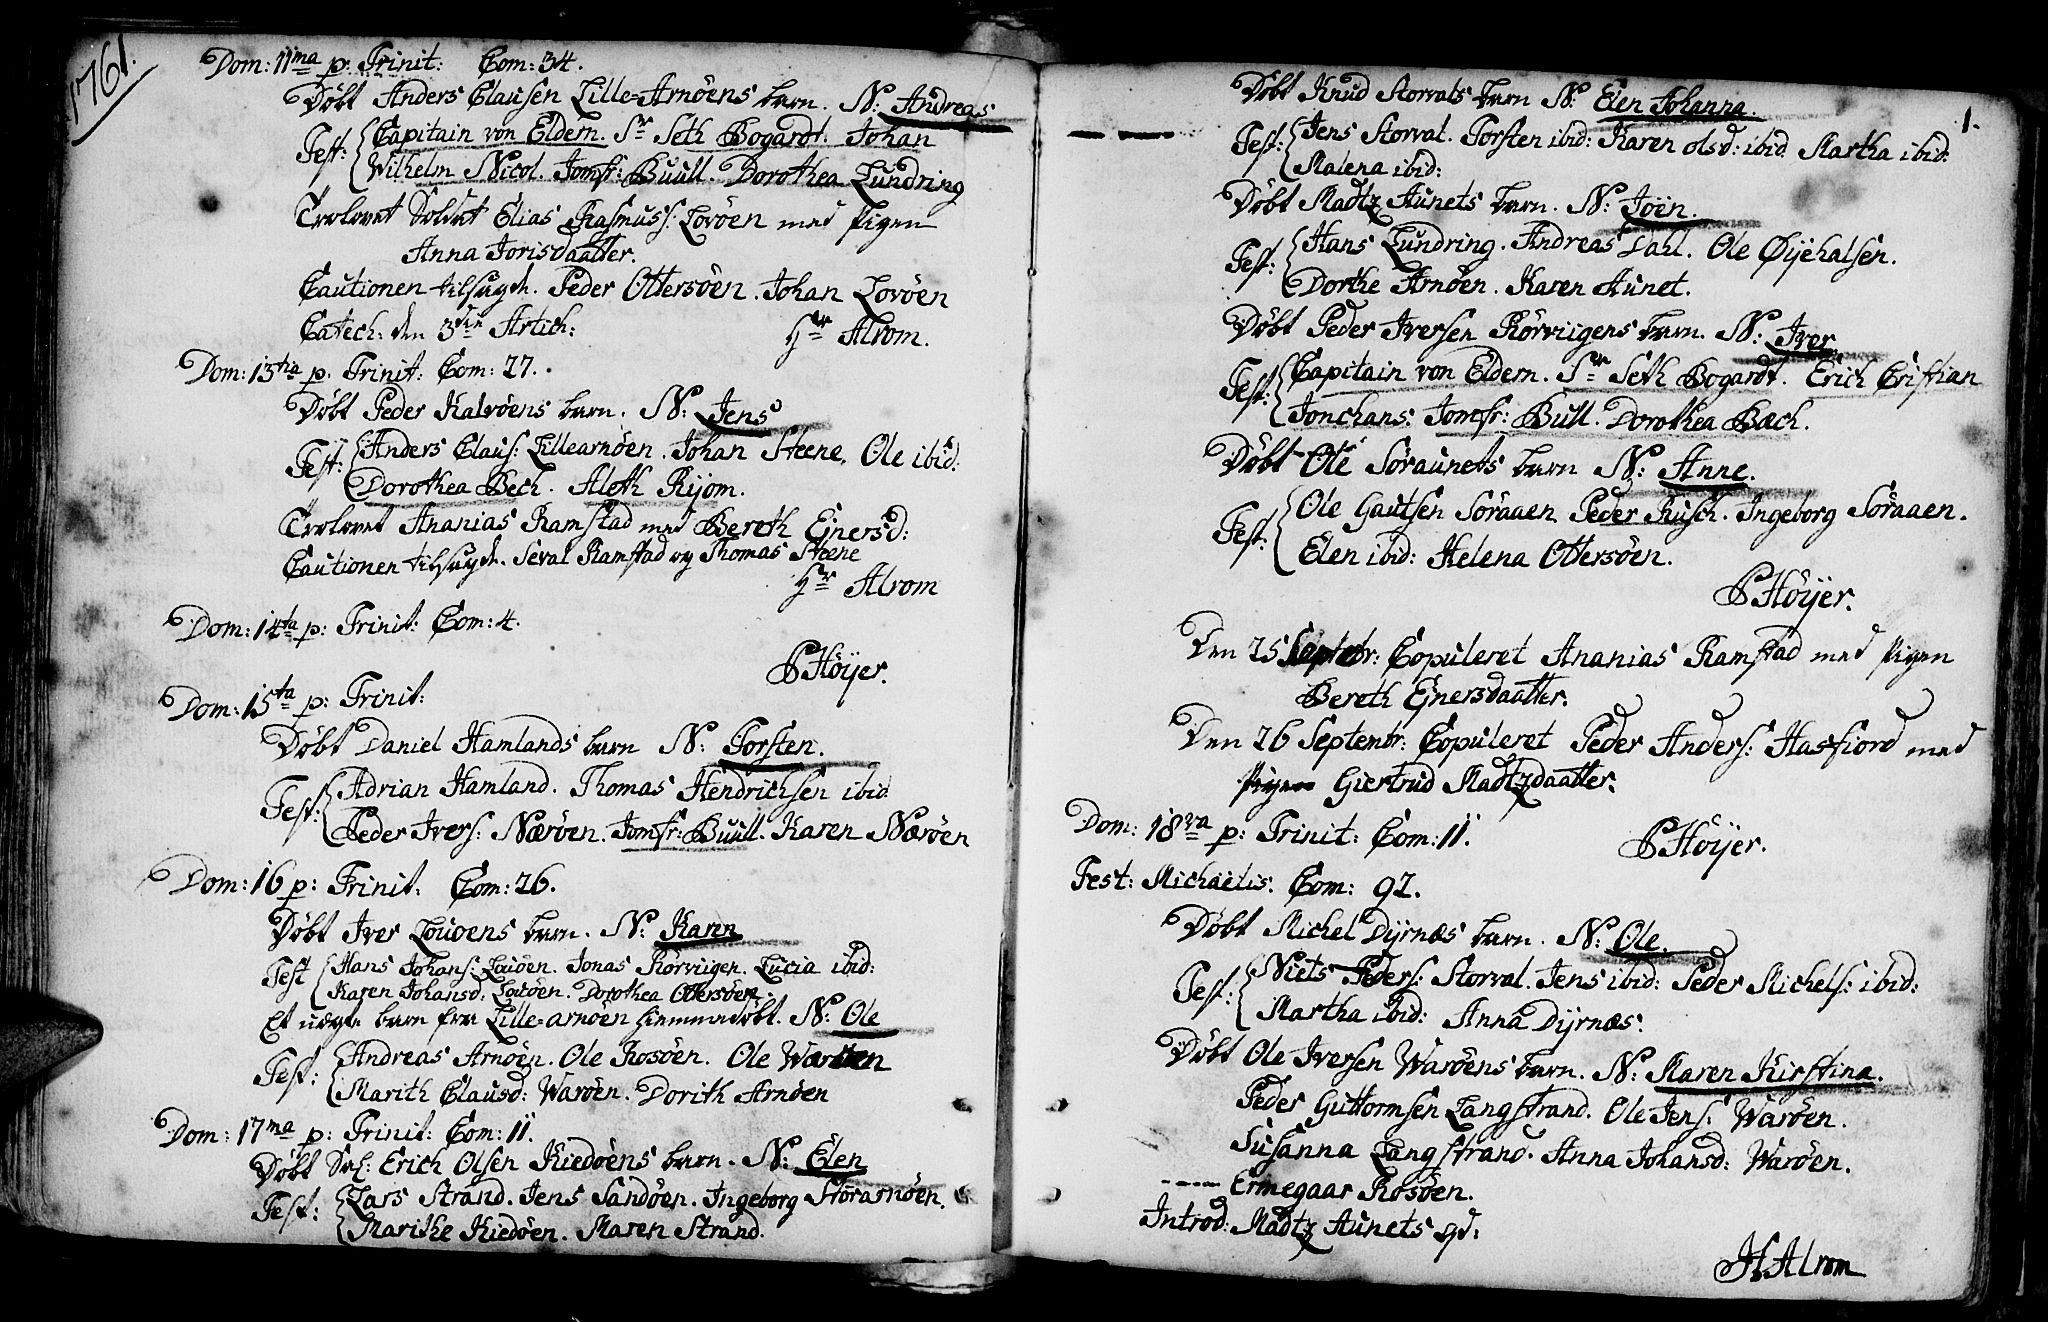 1761.
Dom: 11ma p: Trinit: Com: 34.
Døbt Anders Clausen Lille-Arnöens barn. N: Andreas
Test: Capitain von Eldern. Sr Seth Bogardt. Johan
Wilhelm Nicol. Jomfr: Buull. Dorothea Lundring
Trolovet Soldat Elias Rasmuss: Lovöen med Pigen
Anna Jorisdaatter.
Cautionen tilsagde. Peder Ottersöen. Johan Lovöen
Catech: den 3die Artich:
Hr Alrom.
Dom: 13tia p: Trinit: Com: 27.
Døbt Peder Kalvöens barn. N: Jens
Test: Anders Claus: Lillearnöen. Johan Steene. Ole ibid:
Dorothea Bech. Aleth Ryom.
Trolovet Ananias Ramstad med Bereth Ejnersd:
Cautionen tilsagde. Seval Ramstad og Thomas Steene
Hr Alrom
Dom: 14ta p: Trinit: Com: 4.
P Höyer.
Dom: 15ta p: Trinit:
Døbt Daniel Hamlands barn N: Torsten.
Test: Adrian Hamland. Thomas Hendrichsen ibid
Peder Ivers: Næröen. Jomfr: Buull. Karen Næröen
Dom: 16 p: Trinit: Com: 26.
Døbt Iver Louoens barn. N: Karen
Test Hans Johans: Louöen. Jonas Rörviigen. Lucia ibid:
Karen Johansd: Louöen. Dorothea Ottersöen
Et uægte barn fra Lille-arnöen hiemmedöbt. N: Ole
Test: Andreas Arnöen. Ole Rosöen. Ole Waröen
Marith Clausd: Waröen. Dorith Arnöen
Dom: 17ma p: Trinit: Com: 11.
Døbt Sal: Erich Olsen Kiedöens barn. N: Elen
Test: Lars Strand. Jens Sandöen. Ingeborg Storarnöen.
Marithe Kiedöen. Maren Strand.
1.
Døbt Knud Storvals barn N: Elen Johanna.
Test: Jens Storval. Torsten ibid: Karen olsd: ibid Martha ibid:
Malena ibid:
Døbt Madtz Aunets barn. N: Joen.
Test: Hans Lundring. Andreas Dahl. Ole Øijehalsen.
Dorthe Arnöen. Karen Aunet.
Døbt Peder Iversen Rörviigens barn. N: Iver
Test: Capitain von Eldern. Sr Seth Bogardt. Erich Cristian
Jonchans: Jomfr: Bull. Dorothea Bæch.
Døbt Ole Soraunets barn N: Anne.
Test: Ole Gautsen Söraaen Peder Rusch. Ingeborg Söraaen.
Elen ibid: Helena Ottersöen.
P Höyer.
Den 25 Septebr: Copuleret Ananias Ramstad med Pigen
Bereth Ejnersdaatter.
Den 26 Septembr: Copuleret Peder Anders: Hasfiord med
Pigen Giertrud Madtzdaatter.
Dom: 18va p: Trinit: Com: 11.
P Höyer.
Fest: Michaelis. Com: 92.
Døbt Michel Dyrnæs barn. N: Ole.
Test: Niels Peders: Storval. Jens ibid: Peder Michels: ibid:
Martha ibid: Anna Dyrnæs.
Døbt Ole Iversen Waröens barn. N: Maren Kirstina.
Peder Guttormsen Langstrand. Ole Jens: Waröen.
Susanna Langstrand. Anna Johansd: Waröen.
Ermegaar Rosöen.
Introd: Madtz Aunets qd:
H Alrom